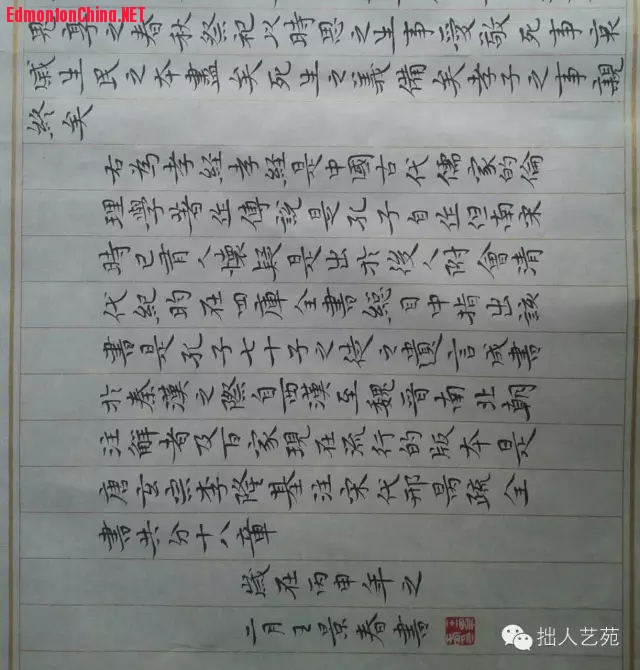 EdmontonChina.NET
鬼享之春秋祭祀以時思之生事愛敬死事哀
戚生民之本盡矣死生之義備矣孝子之事親
終矣
右為孝経孝経是中國古代儒家的倫
理學著作傳說是孔子自作但南宋
時已有人懷疑是出於後人附會清
代紀昀在四庫全書総目中指出該
書是孔子七十子之徒之遺言成書
於秦漢之際自西漢至魏晉南北朝
注解者及百家現在流行的版本是
唐玄宗李隆基注宋代邢昺疏全
書共分十八章
歲在丙申年之
二月王景春書
拙人艺苑